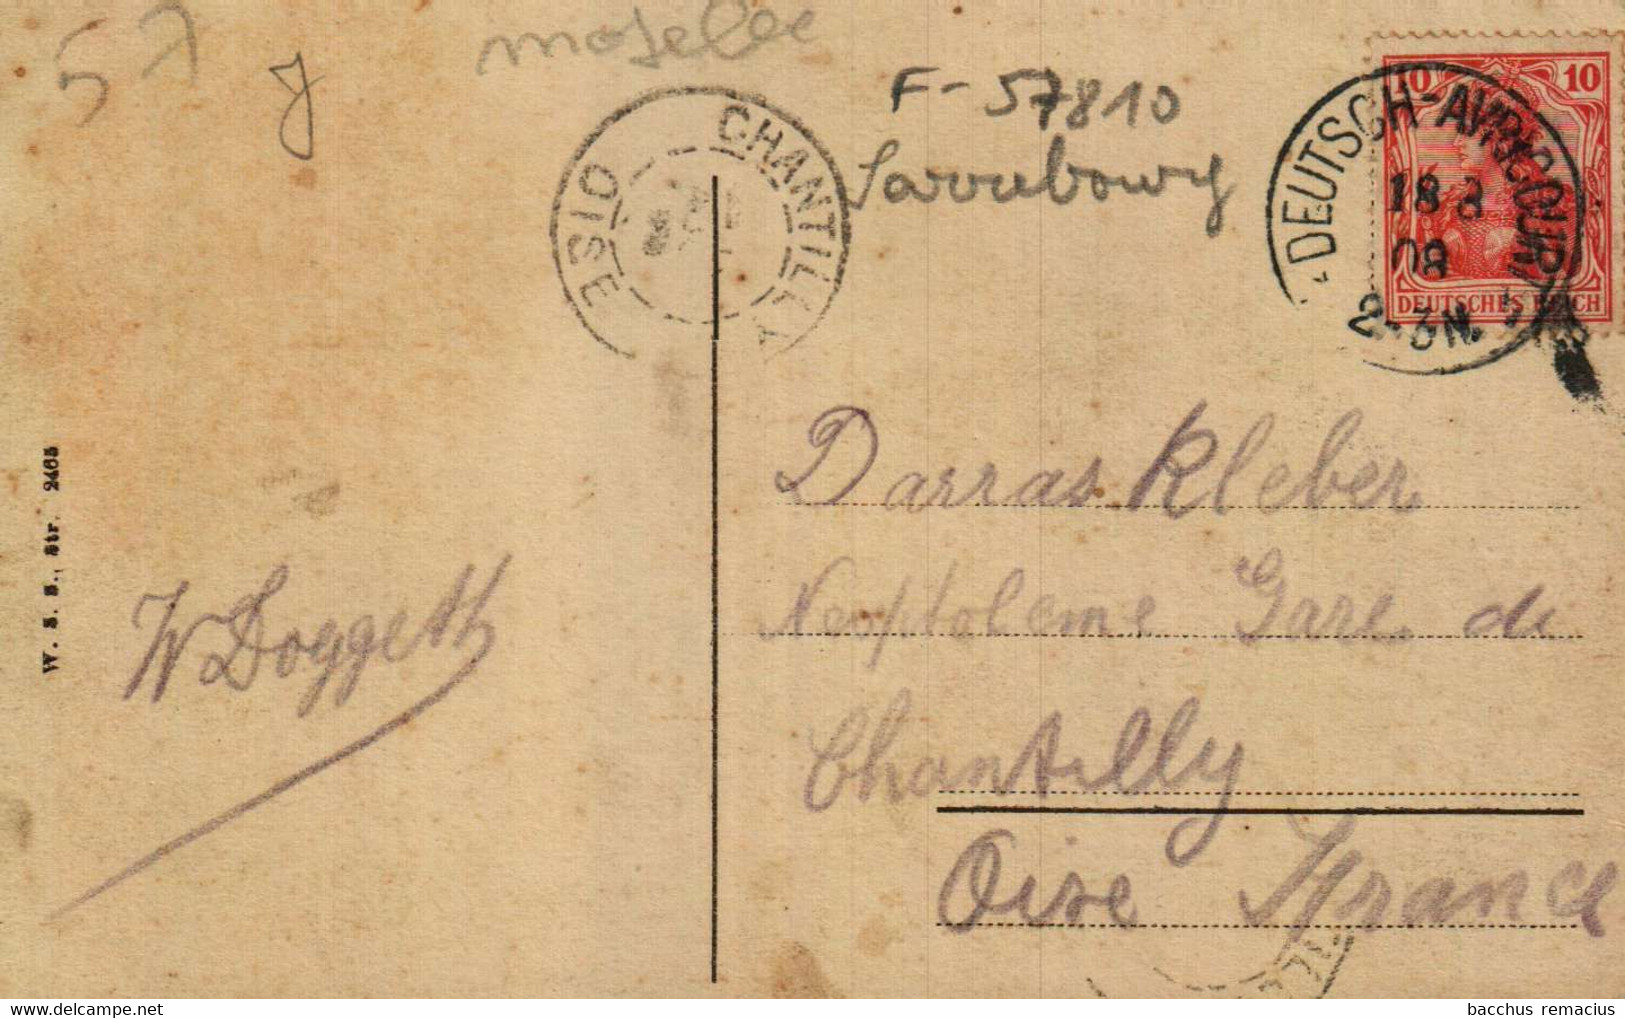 57
moselle
J
F-57810
Sarrebourg
CHANTILLY
OISE
DEUTSCH-AVRICOURT
18 8
09
2-3N.
10 10
DEUTSCHES REICH
W. S. S., Str. 2465
W Doggett
Darras Kleber
Neoptoleme Gare de
Chantilly
Oise France
bacchus remacius